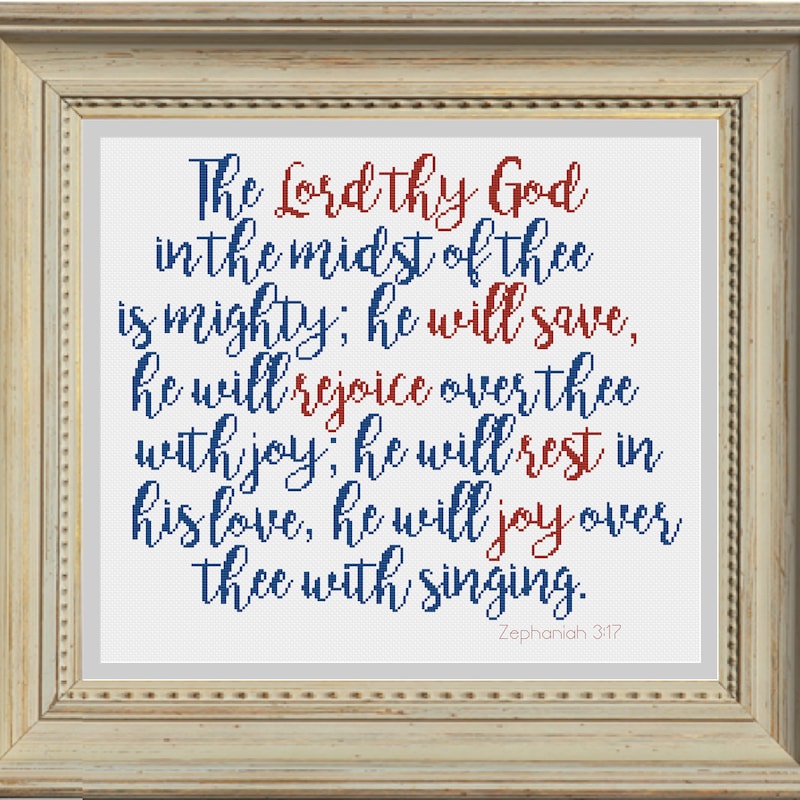 The Lord thy God
in the midst of thee
is mighty; he will save,
he will rejoice over thee
with joy; he will rest in
his love, he will joy over
thee with singing.
Zephaniah 3:17